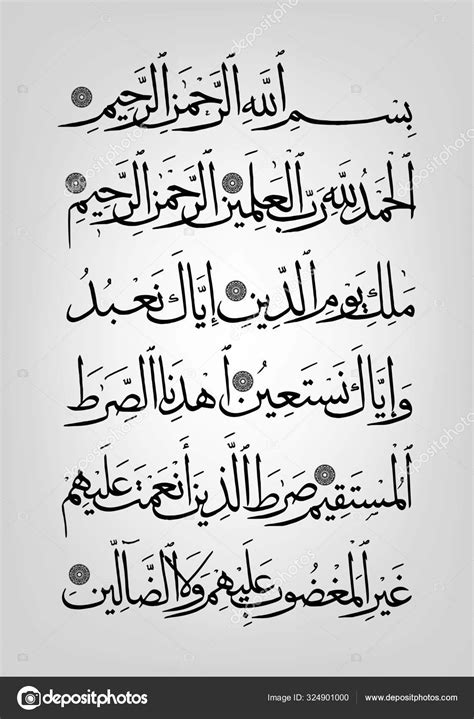 بِسْمِ ٱللَّهِ ٱلرَّحْمَٰنِ ٱلرَّحِيمِ
ٱلْحَمْدُ لِلَّهِ رَبِّ ٱلْعَٰلَمِينَ ٱلرَّحْمَٰنِ ٱلرَّحِيمِ
مَٰلِكِ يَوْمِ ٱلدِّينِ إِيَّاكَ نَعْبُدُ
وَإِيَّاكَ نَسْتَعِينُ ٱهْدِنَا ٱلصِّرَٰطَ
ٱلْمُسْتَقِيمَ صِرَٰطَ ٱلَّذِينَ أَنْعَمْتَ عَلَيْهِمْ
غَيْرِ ٱلْمَغْضُوبِ عَلَيْهِمْ وَلَا ٱلضَّآلِّينَ
depositphotos
Image ID: 324901000
www.depositphotos.com